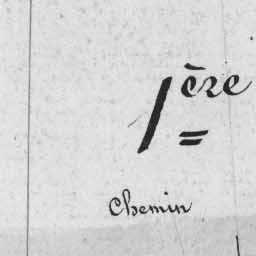 1ère
Chemin